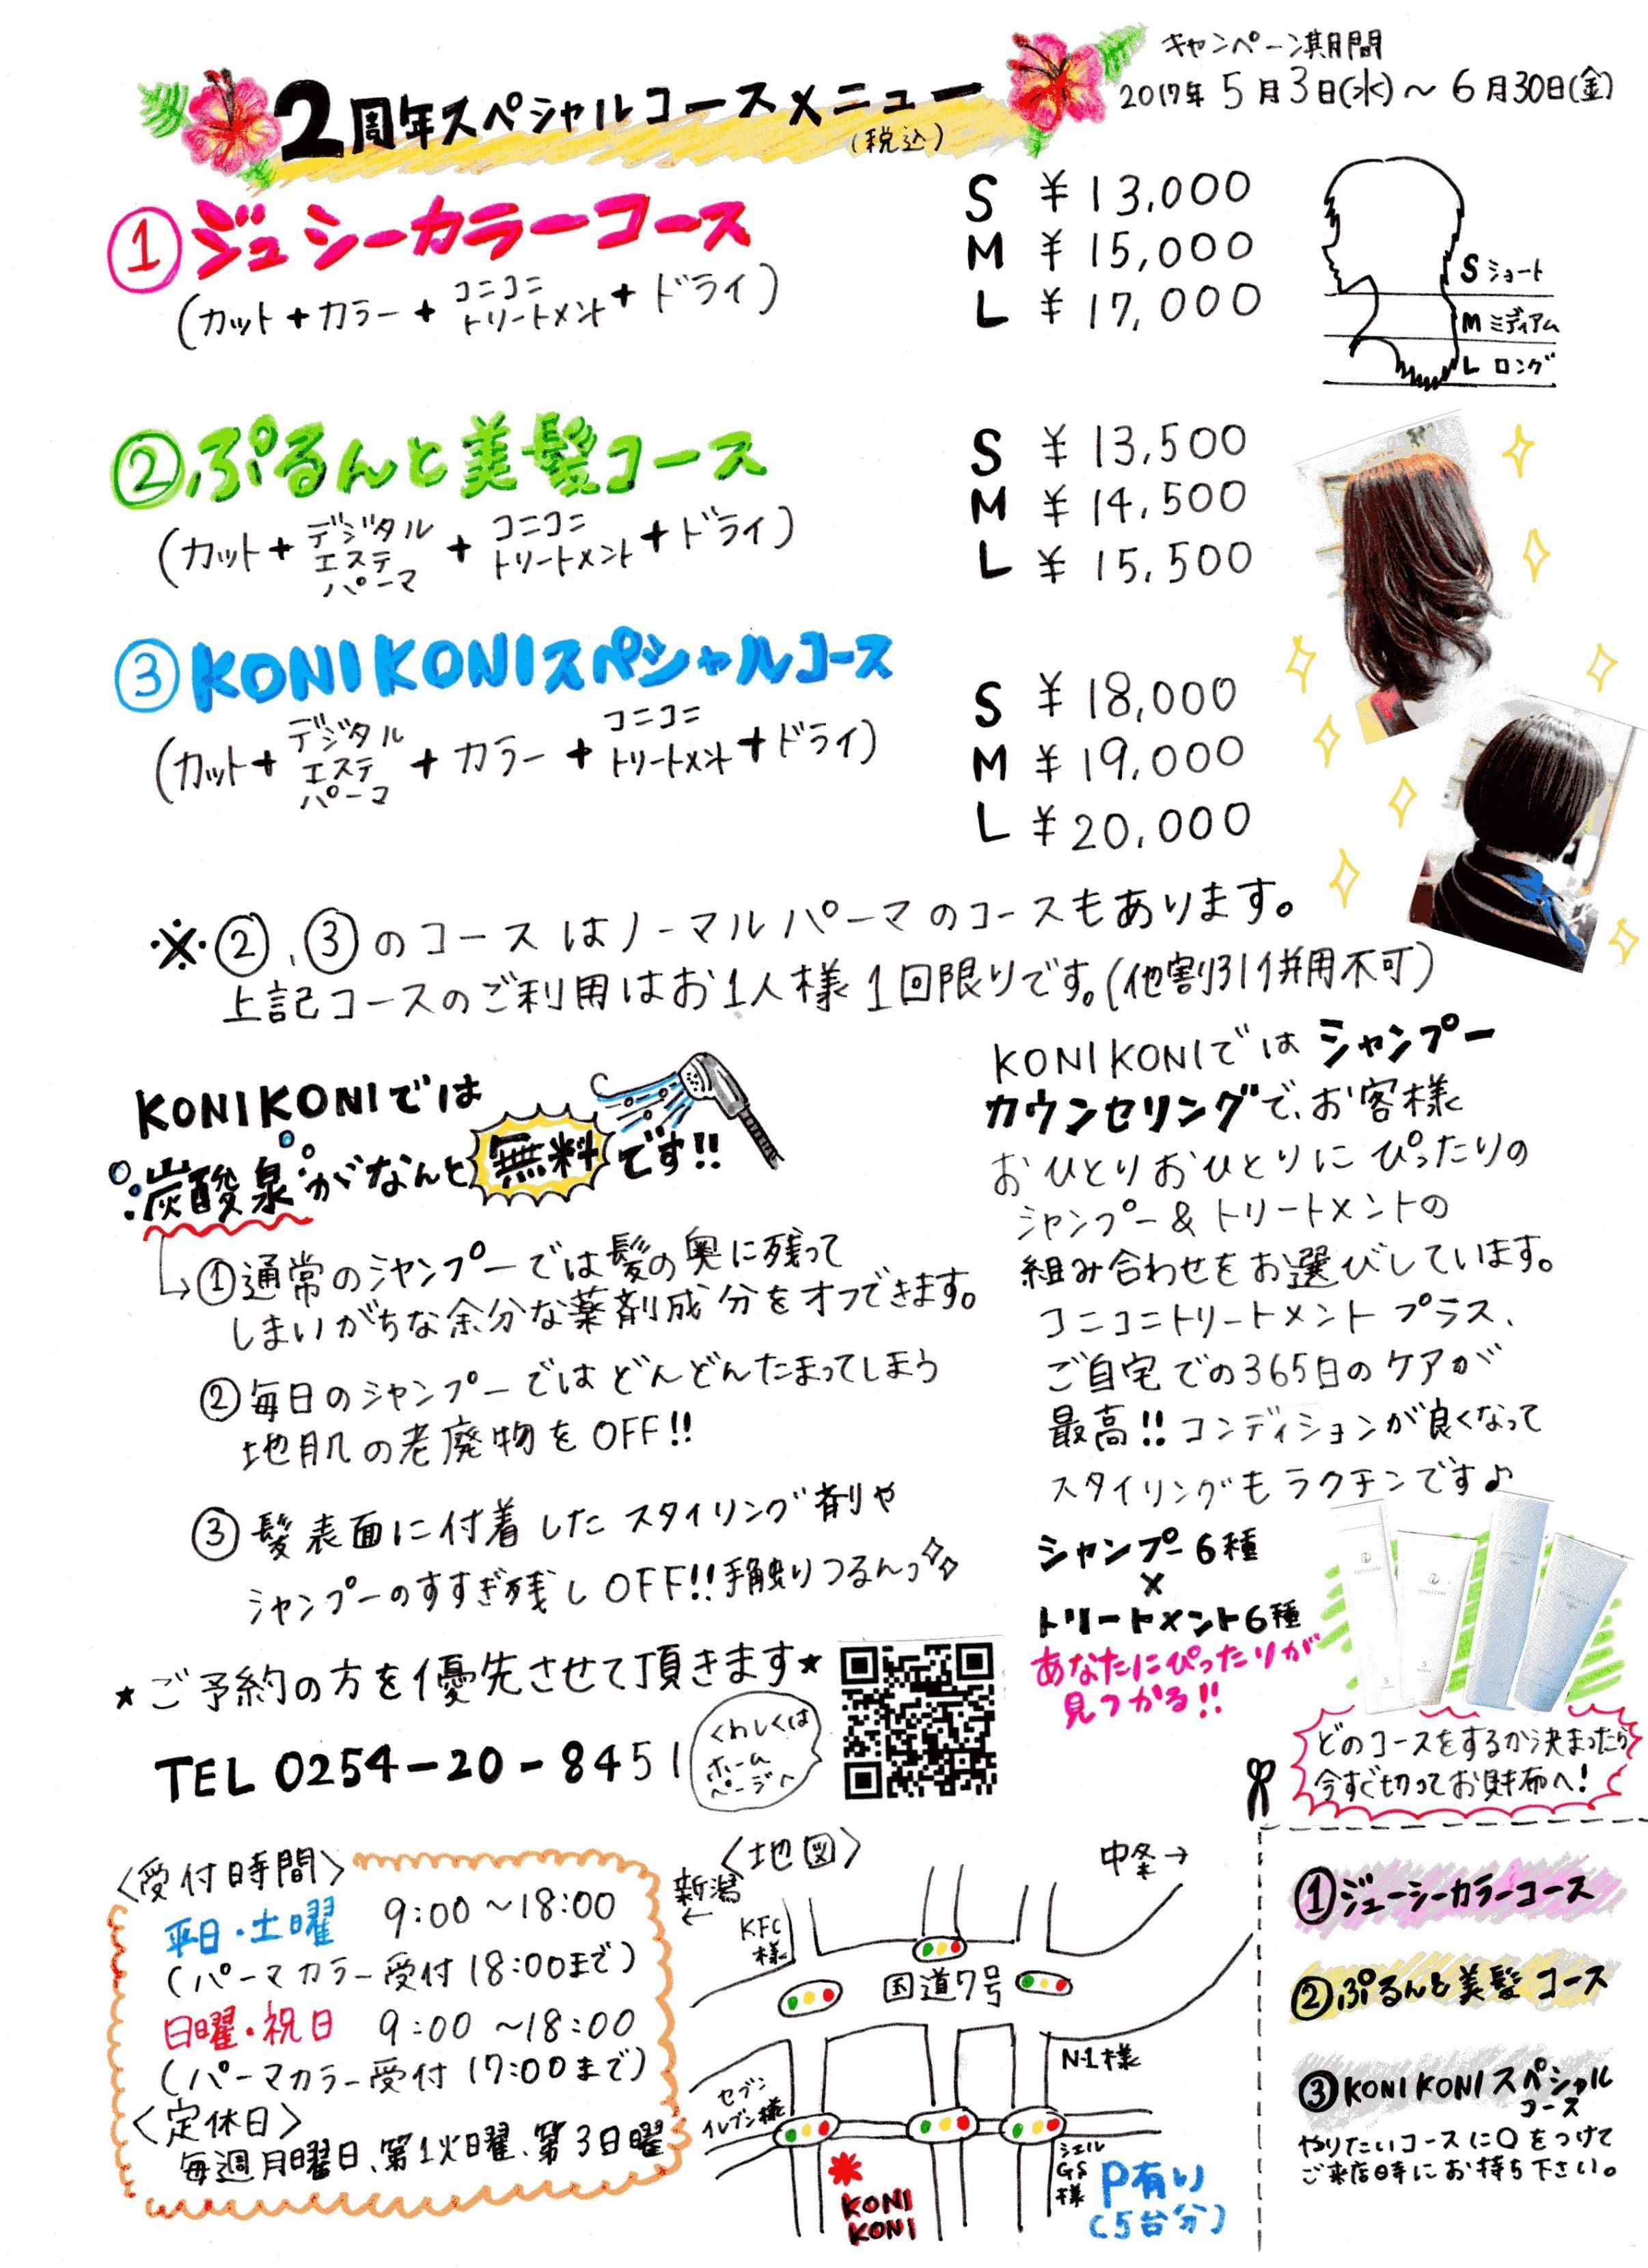 キャンペーン期間
2017年 5月3日(水)～6月30日(金)
2周年スペシャルコースメニュー
(税込)
①ジューシーカラーコース
(カット+カラー+コニコニトリートメント+ドライ)
S ¥13,000
M ¥15,000
L ¥17,000
S ショート
M ミディアム
L ロング
②ぷるんと美髪コース
(カット+デジタルエステパーマ+コニコニトリートメント+ドライ)
S ¥13,500
M ¥14,500
L ¥15,500
③KONIKONIスペシャルコース
(カット+デジタルエステパーマ+カラー+コニコニトリートメント+ドライ)
S ¥18,000
M ¥19,000
L ¥20,000
※②、③のコースはノーマルパーマのコースもあります。
上記コースのご利用はお1人様1回限りです。(他割引併用不可)
KONIKONIでは
炭酸泉がなんと無料です!!
①通常のシャンプーでは髪の奥に残って
しまいがちな余分な薬剤成分をオフできます。
②毎日のシャンプーではどんどんたまってしまう
地肌の老廃物をOFF!!
③髪表面に付着したスタイリング剤や
シャンプーのすすぎ残しOFF!!手触りつるんっ
KONIKONIではシャンプー
カウンセリングで、お客様
おひとりおひとりにぴったりの
シャンプー&トリートメントの
組み合わせをお選びしています。
コニコニトリートメントプラス、
ご自宅での365日のケアが
最高!!コンディションが良くなって
スタイリングもラクチンです♪
シャンプー6種
×
トリートメント6種
あなたにぴったりが
見つかる!!
★ご予約の方を優先させて頂きます★
TEL 0254-20-8451
くわしくは
ホーム
ページへ
どのコースをするか決まったら
今すぐ切ってお財布へ!
<受付時間>
平日・土曜 9:00～18:00
(パーマカラー受付18:00まで)
日曜・祝日 9:00～18:00
(パーマカラー受付17:00まで)
<定休日>
毎週月曜日、第1火曜、第3日曜
<地図>
新潟
←
中条→
KFC
様
国道7号
N-1様
セブン
イレブン様
シェル
GS
様
KONI
KONI
P有り
(5台分)
①ジューシーカラーコース
②ぷるんと美髪コース
③KONIKONIスペシャル
コース
やりたいコースに○をつけて
ご来店時にお持ち下さい。